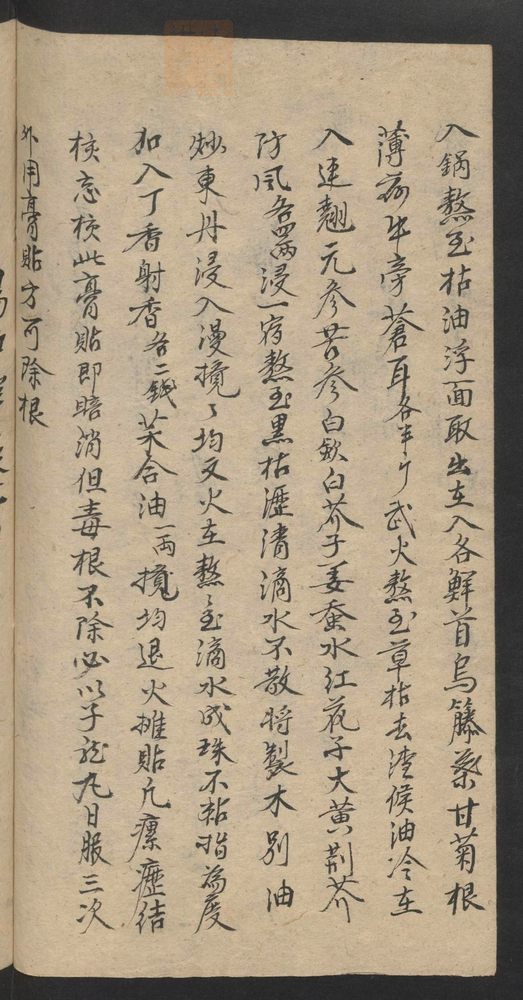 入鍋熬至枯油浮面取出在入各鮮首烏籐葉甘菊根
薄荷牛旁蒼耳各半斤武火熬至草枯去渣候油冷在
入連翹元參苦參白歛白芥子姜蚕水红花子大黄荆芥
防風各四両浸一宿熬至黒枯瀝清滴水不散將製木别油
炒東丹浸入漫攪々均文火在熬々至滴水成珠不粘指為度
加入丁香射香各二錢合油一両攪均退火攤貼凡瘰癧結
核忘核此膏貼即暗消但毒根不除必以子龍丸日服三次
外用膏貼方可除根